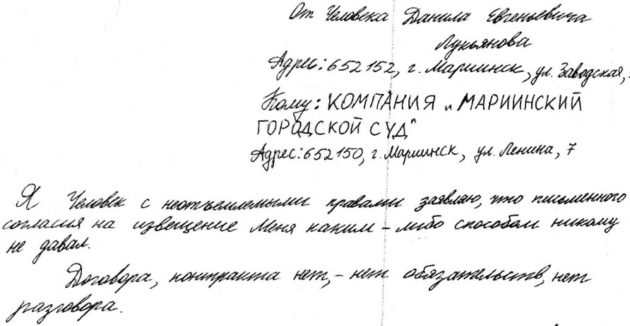 От Человека Данила Евгеньевича
Лукьянова
Адрес: 652152, г. Мариинск, ул. Заводская,
Кому: КОМПАНИЯ „МАРИИНСКИЙ
ГОРОДСКОЙ СУД"
Адрес: 652150, г. Мариинск, ул. Ленина, 7
Я Человек с неотъемлемыми правами заявляю, что письменного
согласия на извещение Меня каким-либо способом никому
не давал.
Договора, контракта нет, - нет обязательств, нет
разговора.